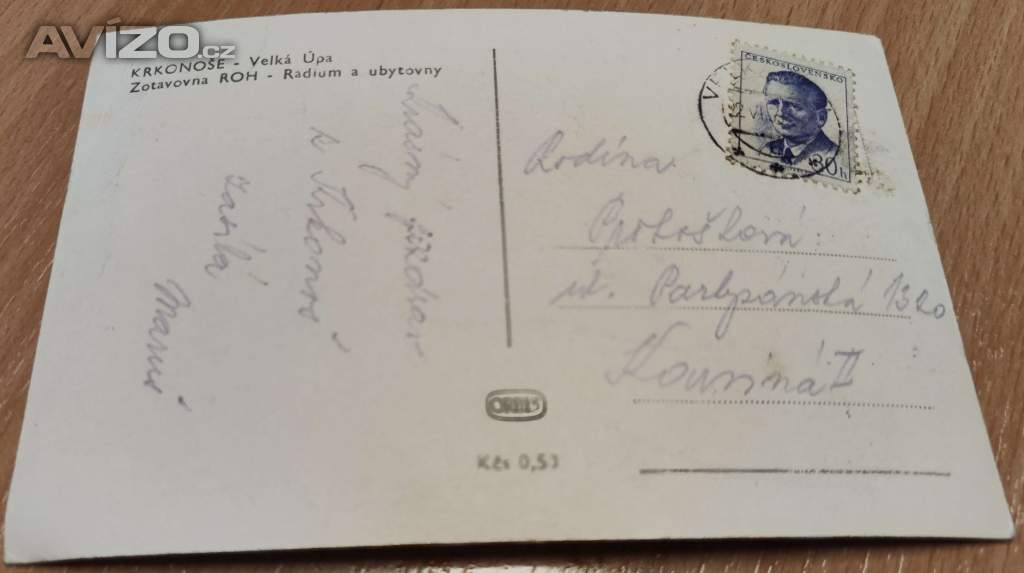 AVÍZO.cz
KRKONOŠE - Velká Úpa
Zotavovna ROH - Radium a ubytovny
Krásný pozdrav
z Krkonoš
zasílá
ČESKOSLOVENSKO
30 h
Rodina
ul. Partyzánská 1320
II
ORBIS
Kčs 0,53